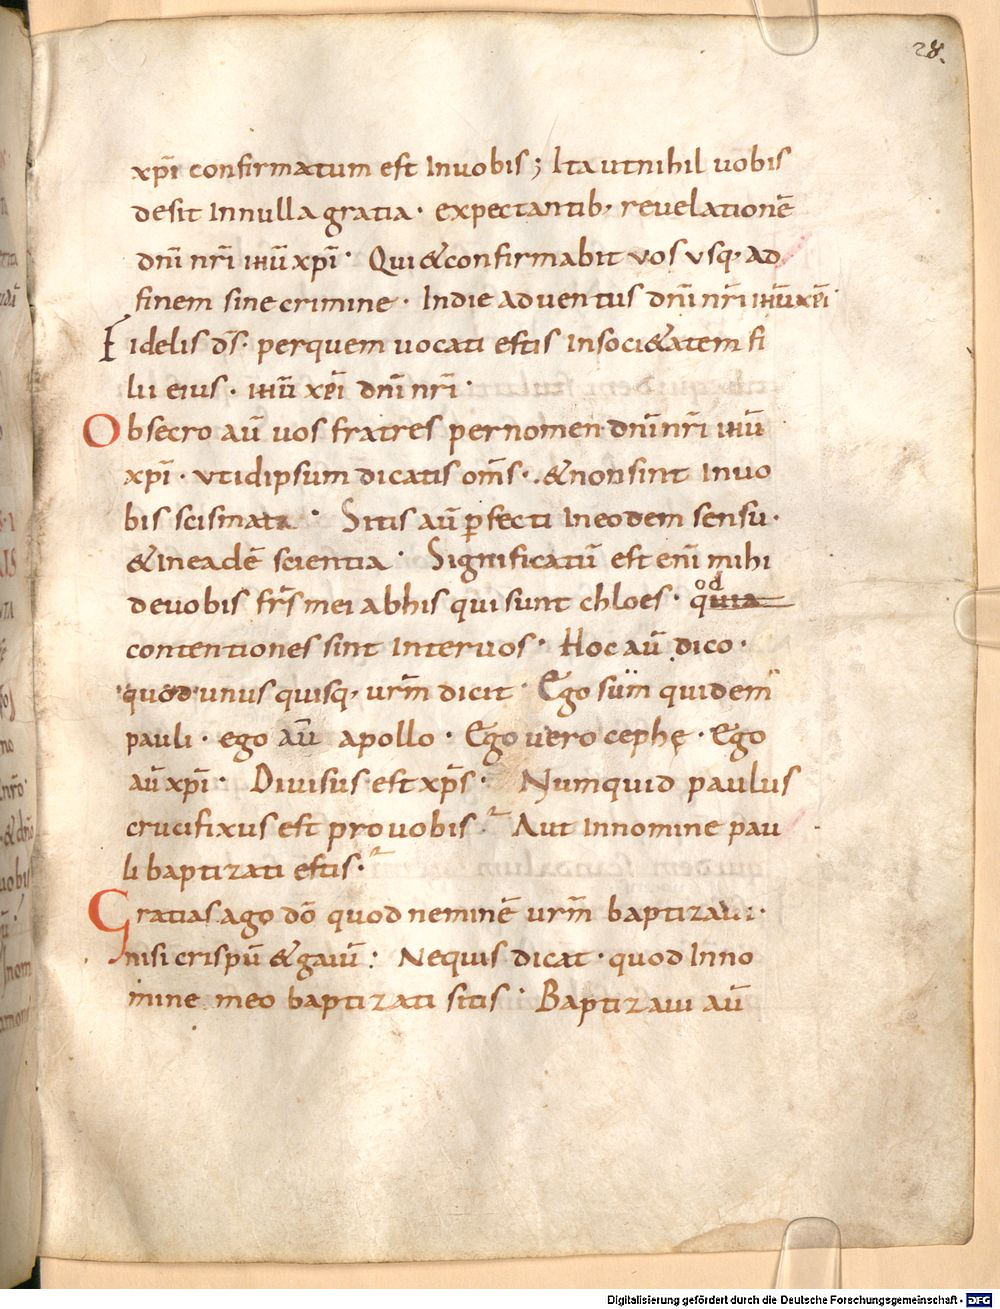 28.
xp̄i confirmatum est Inuobis; Ita ut nihil uobis
desit In nulla gratia · expectantib, reuelationē
dn̄i nr̄i ihū xp̄i · Qui & confirmabit vos vsq, ad
finem sine crimine · In die aduentus dn̄i nr̄i ihū xp̄i
Fidelis ds̄ · per quem uocati estis In soci&atem fi
lii eius · ihū xp̄i dn̄i nr̄i ·
Obsecro aū uos fratres per nomen dn̄i nr̄i ihū
xp̄i · vt idipsum dicatis om̄s · & non sint Inuo
bis scismata · Sitis aū ꝑfecti In eodem sensu ·
& In eadē scientia · Significatū est eni̅ mihi
de uobis fr̄s mei ab his qui sunt chloes · quia od
contentiones sint Inter uos · Hoc aū dico ·
quod unus quisq, urm̄ dicit · Ego sum quidem
pauli · ego aū apollo · Ego uero cephę · Ego
aū xp̄i · Diuisus est xp̄s · Numquid paulus
crucifixus est pro uobis · Aut In nomine pau
li baptizati estis ·
Gratias ago dō quod neminē urm̄ baptizaui ·
nisi crispū & gaiū : Nequis dicat · quod Inno
mine meo baptizati sitis · Baptizaui aū
Digitalisierung gefördert durch die Deutsche Forschungsgemeinschaft - DFG